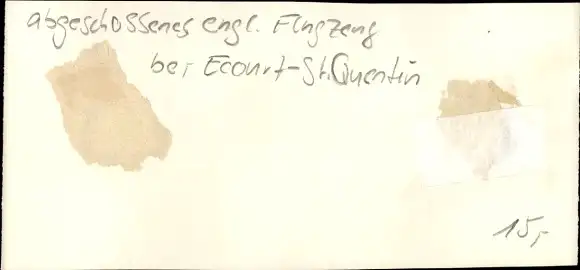 abgeschossenes engl. Flugzeug
bei Ecourt-St.Quentin
15,-